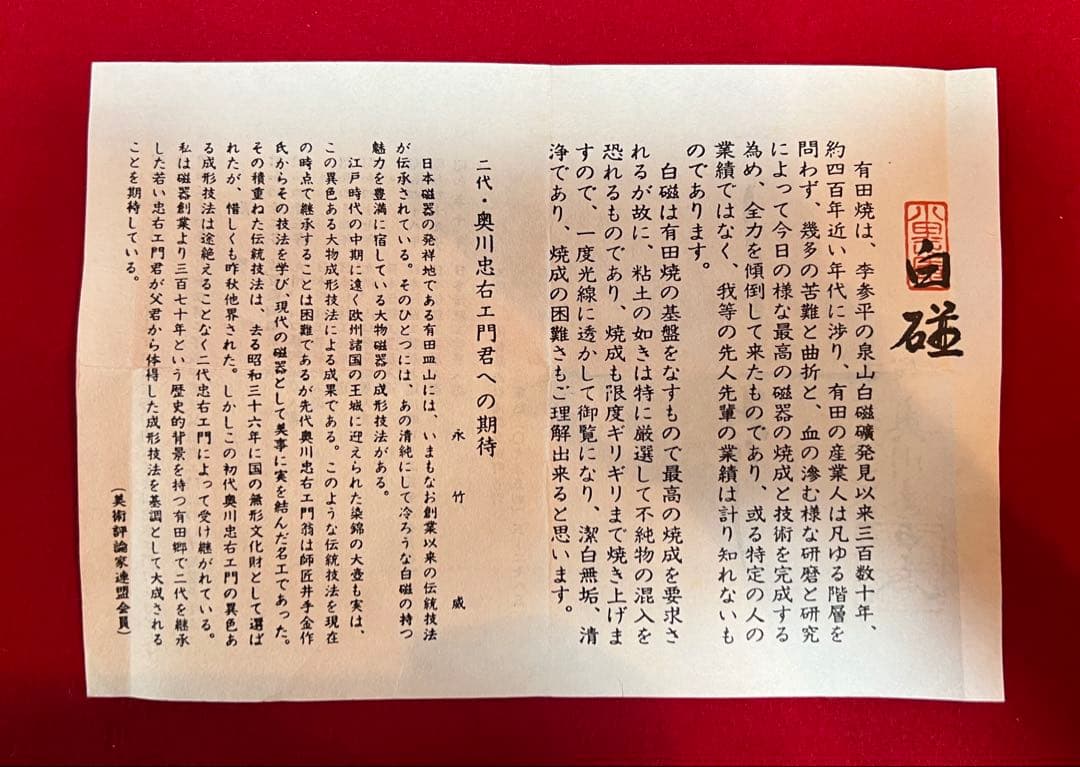 白磁
有田焼は、李参平の泉山白磁礦発見以来三百数十年、
約四百年近い年代に渉り、有田の産業人は凡ゆる階層を
問わず、幾多の苦難と曲折と、血の滲む様な研磨と研究
によって今日の様な最高の磁器の焼成と技術を完成する
為め、全力を傾倒して来たものであり、或る特定の人の
業績ではなく、我等の先人先輩の業績は計り知れないも
のであります。
白磁は有田焼の基盤をなすもので最高の焼成を要求さ
れるが故に、粘土の如きは特に厳選して不純物の混入を
恐れるものであり、焼成も限度ギリギリまで焼き上げま
すので、一度光線に透かして御覧になり、潔白無垢、清
浄であり、焼成の困難さもご理解出来ると思います。
二代・奥川忠右エ門君への期待
永竹威
日本磁器の発祥地である有田皿山には、いまもなお創業以来の伝統技法
が伝承されている。そのひとつには、あの清純にして冷ろうな白磁の持つ
魅力を豊満に宿している大物磁器の成形技法がある。
江戸時代の中期に遠く欧州諸国の王城に迎えられた染錦の大壺も実は、
この異色ある大物成形技法による成果である。このような伝統技法を現在
の時点で継承することは困難であるが先代奥川忠右エ門翁は師匠井手金作
氏からその技法を学び、現代の磁器として美事に実を結んだ名工であった。
その積重ねた伝統技法は、去る昭和三十六年に国の無形文化財として選ば
れたが、惜しくも昨秋他界された。しかしこの初代奥川忠右エ門の異色あ
る成形技法は途絶えることなく二代忠右エ門によって受け継がれている。
私は磁器創業より三百七十年という歴史的背景を持つ有田郷で二代を継承
した若い忠右エ門君が父君から体得した成形技法を基調として大成される
ことを期待している。
（美術評論家連盟会員）